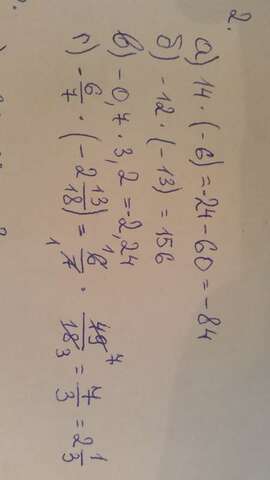 2.
а) 14 · (-6) = -24-60 = -84
б) -12 · (-13) = 156
в) -0,7 · 3,2 = -2,24
г) -6/7 · (-2 13/18) = 6/7 · 49/18 = 7/3 = 2 1/3